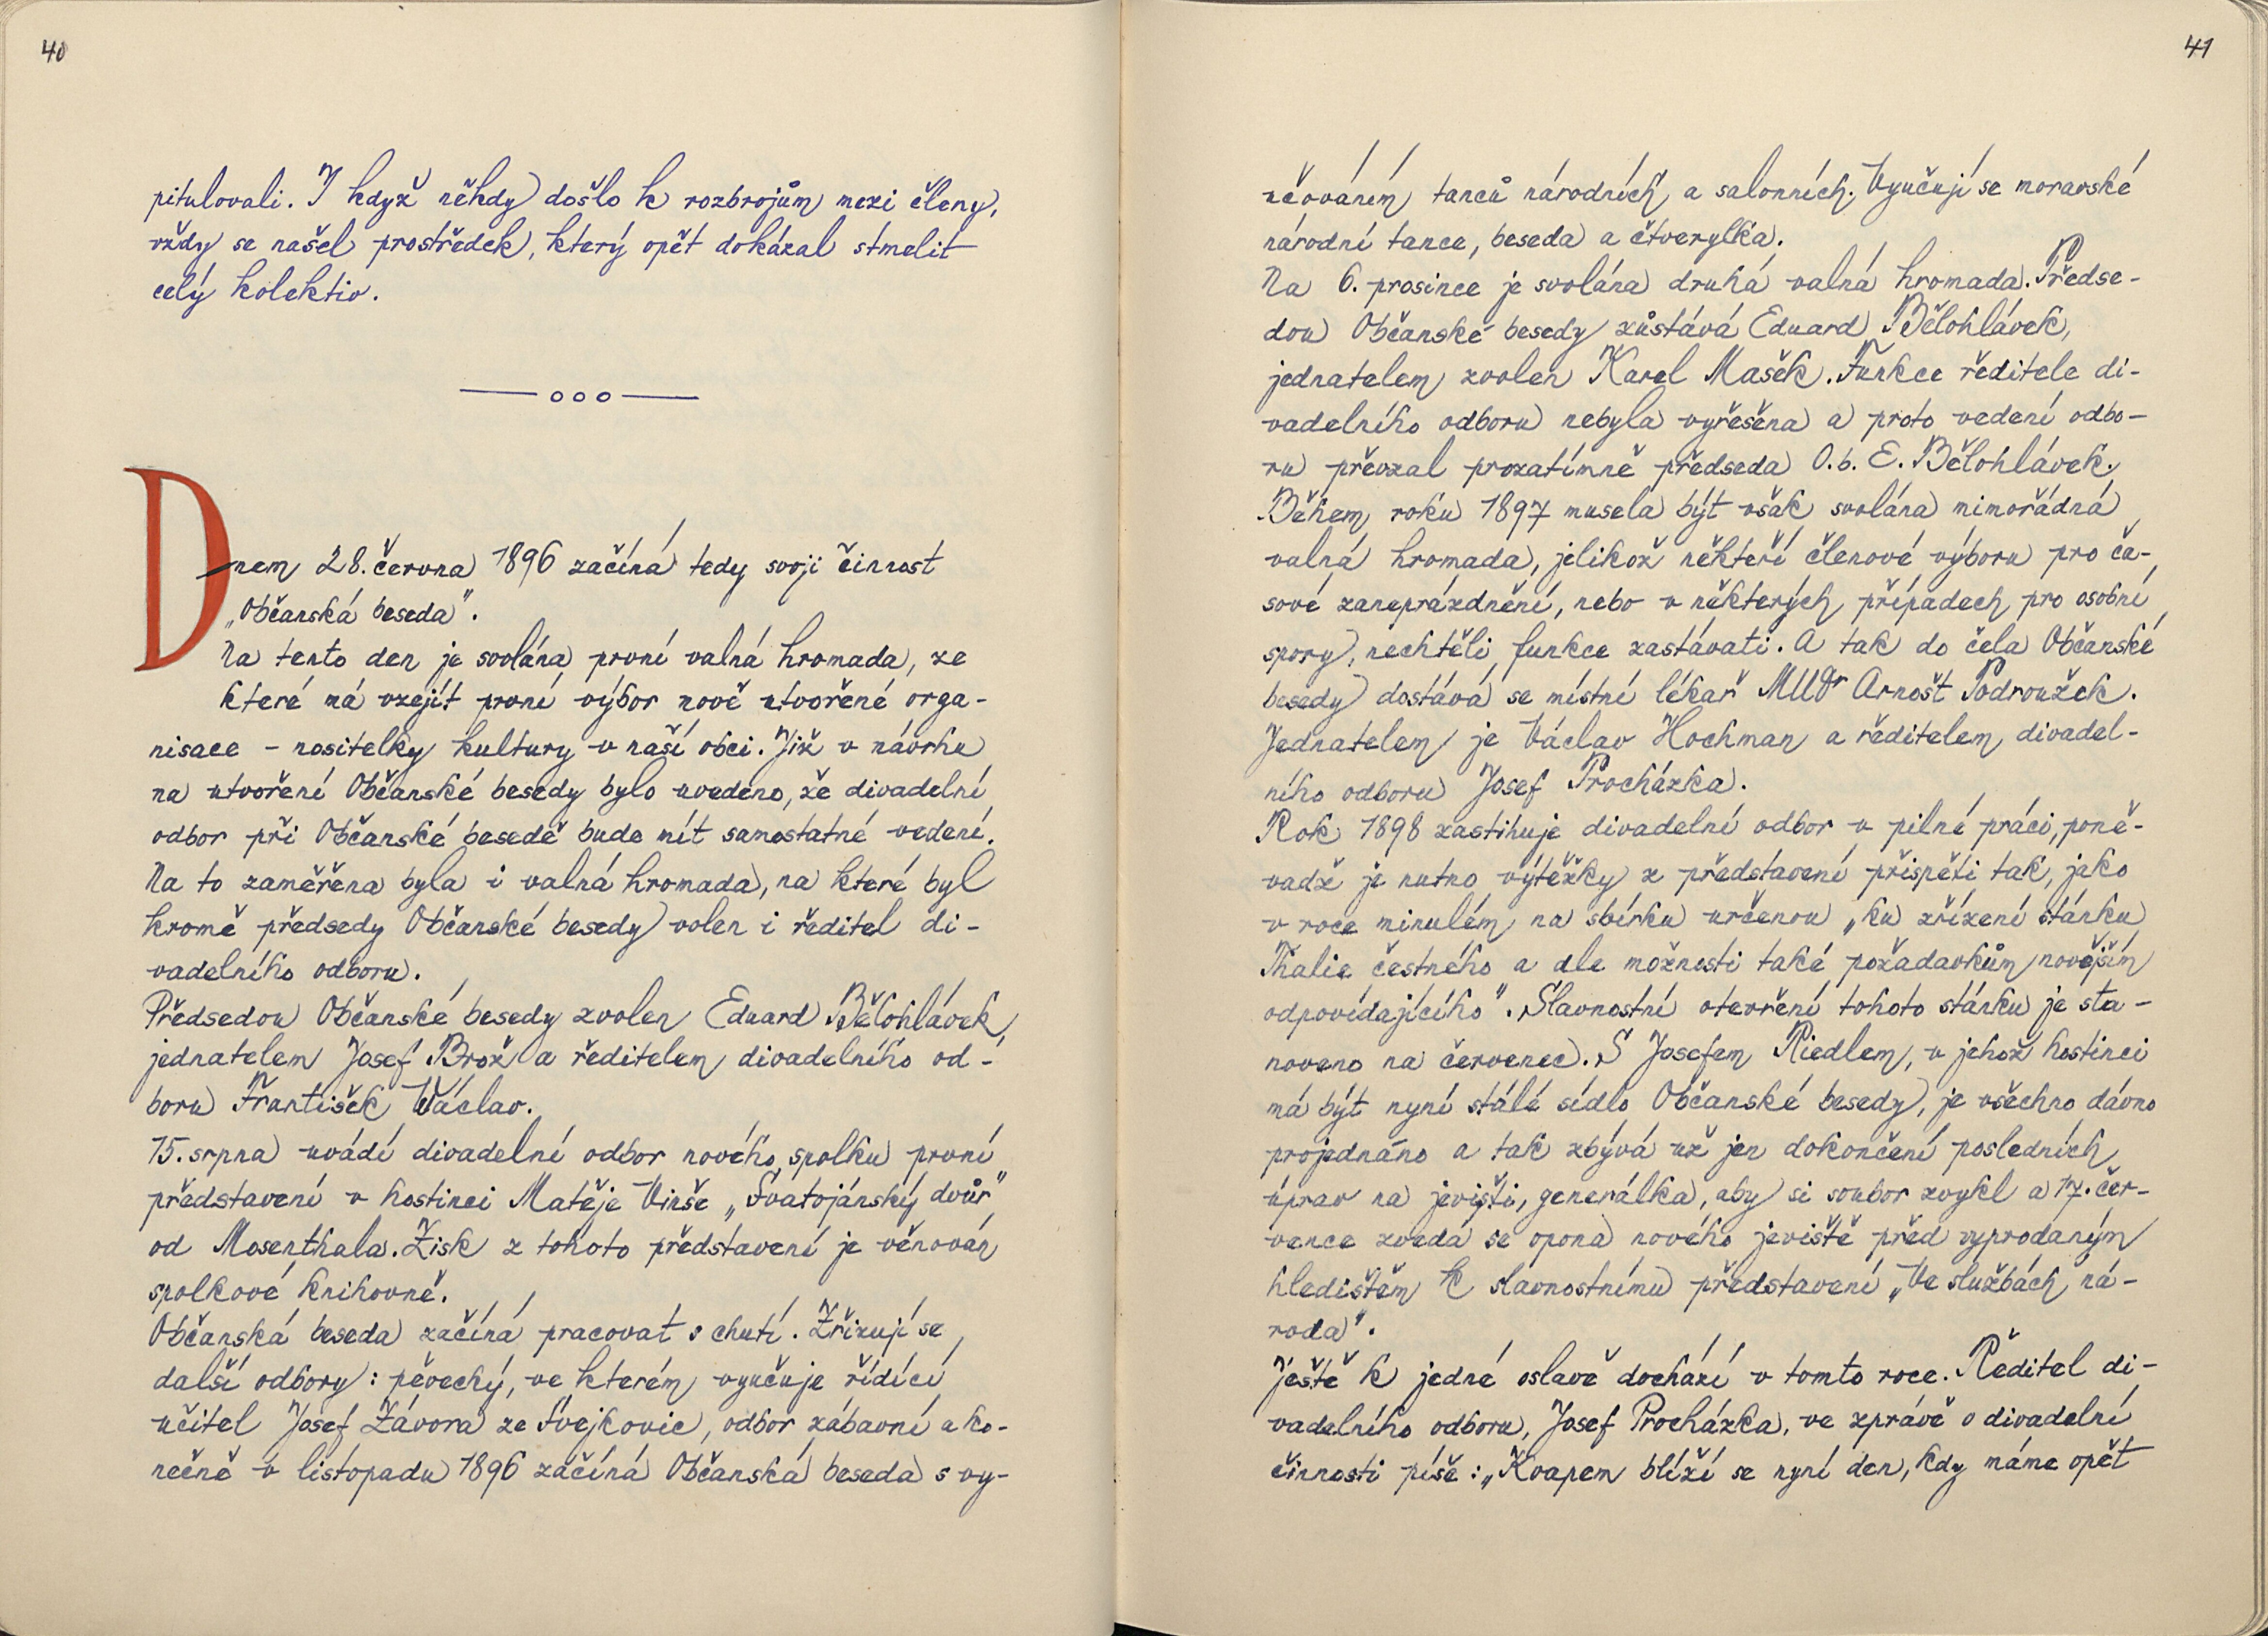 40
pitulovali. I když někdy došlo k rozbrojům mezi členy,
vždy se našel prostředek, který opět dokázal stmelit
celý kolektiv.
Dnem 28. června 1896 začíná tedy svoji činnost
„Občanská beseda".
Na tento den je svolána první valná hromada, ze
které má vzejít první výbor nově utvořené orga-
nisace - nositelky kultury v naší obci. Již v návrhu
na utvoření Občanské besedy bylo uvedeno, že divadelní
odbor při Občanské besedě bude mít samostatné vedení.
Na to zaměřena byla i valná hromada, na které byl
kromě předsedy Občanské besedy volen i ředitel di-
vadelního odboru.
Předsedou Občanské besedy zvolen Eduard Bělohlávek,
jednatelem Josef Brož a ředitelem divadelního od-
boru František Václav.
15. srpna uvádí divadelní odbor nového spolku první
představení v hostinci Matěje Vinše „Svatojánský dvůr"
od Mosenthala. Zisk z tohoto představení je věnován
spolkové knihovně.
Občanská beseda začíná pracovat s chutí. Zřizují se
další odbory: pěvecký, ve kterém vyučuje řídící
učitel Josef Závora ze Svejkovic, odbor zábavní a ko-
nečně v listopadu 1896 začíná Občanská beseda s vy-
41
učováním tanců národních a salonních. Vyučují se moravské
národní tance, beseda a čtverylka.
Na 6. prosince je svolána druhá valná hromada. Předse-
dou Občanské besedy zůstává Eduard Bělohlávek,
jednatelem zvolen Karel Mašek. Funkce ředitele di-
vadelního odboru nebyla vyřešena a proto vedení odbo-
ru převzal prozatímně předseda O.b. E. Bělohlávek.
Během roku 1897 musela být však svolána mimořádná
valná hromada, jelikož někteří členové výboru pro ča-
sové zaneprázdnění, nebo v některých případech pro osobní
spory, nechtěli funkce zastávati. A tak do čela Občanské
besedy dostává se místní lékař MUDr Arnošt Podroužek.
Jednatelem je Václav Hochman a ředitelem divadel-
ního odboru Josef Procházka.
Rok 1898 zastihuje divadelní odbor v pilné práci, poně-
vadž je nutno výtěžky z představení přispěti tak, jako
v roce minulém na sbírku určenou „ku zřízení stánku
Thalie čestného a dle možnosti také požadavkům novějším
odpovídajícího". Slavnostní otevření tohoto stánku je sta-
noveno na červenec. S Josefem Riedlem, v jehož hostinci
má být nyní stálé sídlo Občanské besedy, je všechno dávno
projednáno a tak zbývá už jen dokončení posledních
úprav na jevišti, generálka, aby si soubor zvykl a 17. čer-
vence zvedá se opona nového jeviště před vyprodaným
hledištěm k slavnostnímu představení „Ve službách ná-
roda".
Ještě k jedné oslavě dochází v tomto roce. Ředitel di-
vadelního odboru, Josef Procházka, ve zprávě o divadelní
činnosti píše: „Kvapem blíží se nyní den, kdy máme opět